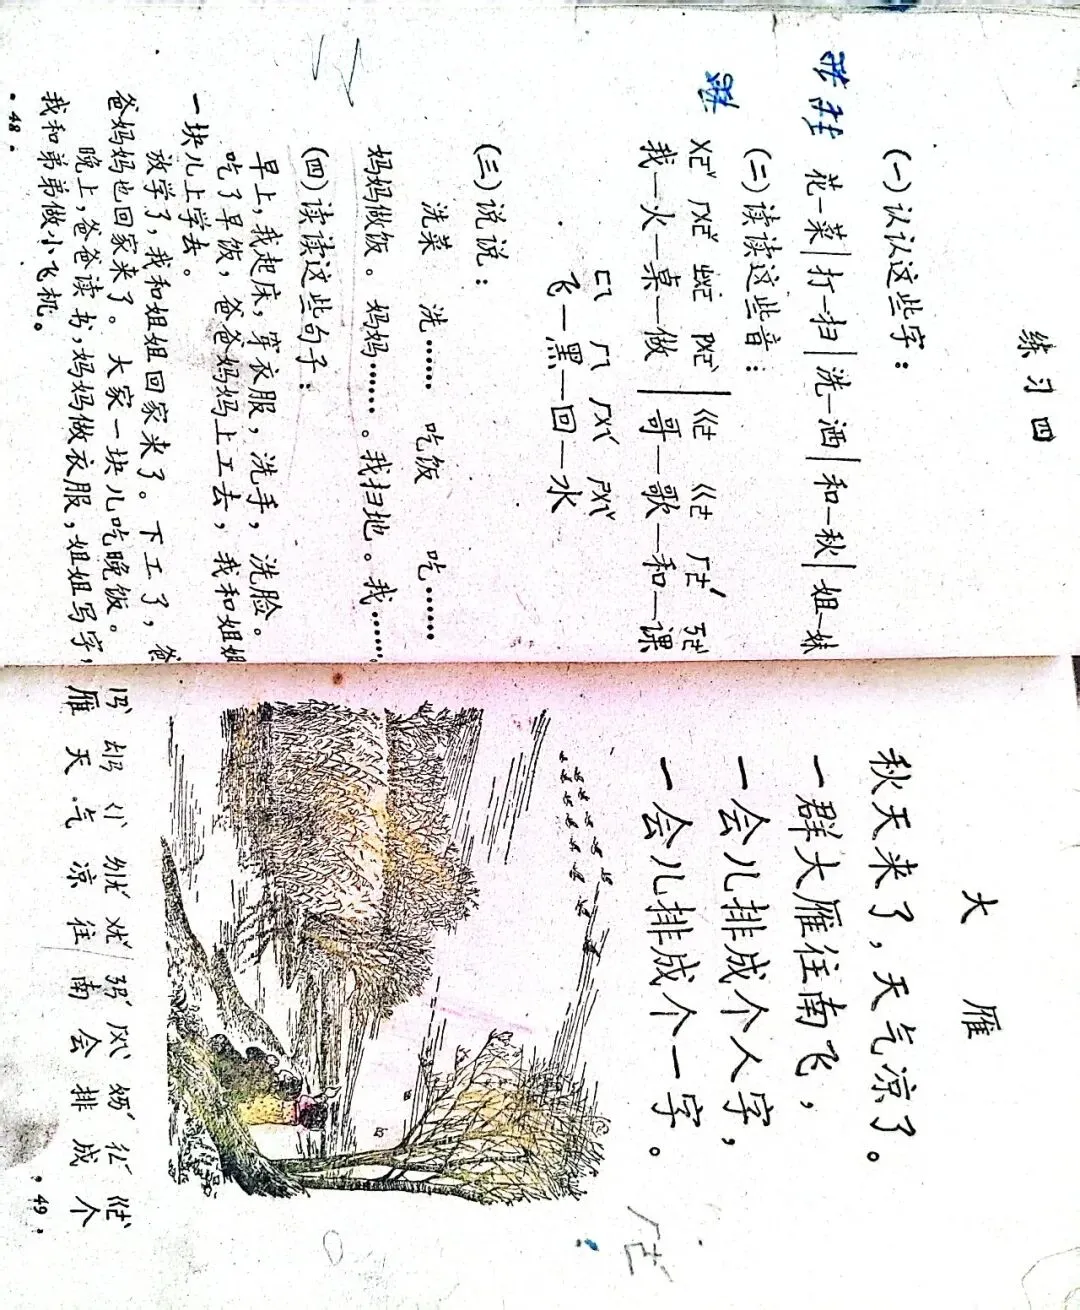 练习四
(一)认认这些字:
花—菜|打—扫|洗—洒|和—秋|姐—妹
(二)读读这些音:
ㄨㄛˇ ㄏㄨㄛˇ ㄓㄨㄛ ㄗㄨㄛˋ | ㄍㄜ ㄍㄜ ㄏㄜˊ ㄎㄜˋ
我—火—桌—做 | 哥—歌—和—课
ㄈㄟ ㄏㄟ ㄏㄨㄟˊ ㄕㄨㄟˇ
飞—黑—回—水
(三)说说:
洗菜 洗…… 吃饭 吃……
妈妈做饭。妈妈……。我扫地。我……。
(四)读读这些句子:
早上,我起床,穿衣服,洗手,洗脸。
吃了早饭,爸爸妈妈上工去,我和姐姐
一块儿上学去。
放学了,我和姐姐回家来了。下工了,爸
爸妈妈也回家来了。大家一块儿吃晚饭。
晚上,爸爸读书,妈妈做衣服,姐姐写字,
我和弟弟做小飞机。
·48·
大雁
秋天来了,天气凉了。
一群大雁往南飞,
一会儿排成个人字,
一会儿排成个一字。
ㄧㄢˋ ㄊㄧㄢ ㄑㄧˋ ㄌㄧㄤˊ ㄨㄤˇ ㄋㄢˊ ㄏㄨㄟˋ ㄆㄞˊ ㄔㄥˊ ㄍㄜˋ
雁 天 气 凉 往 南 会 排 成 个
·49·